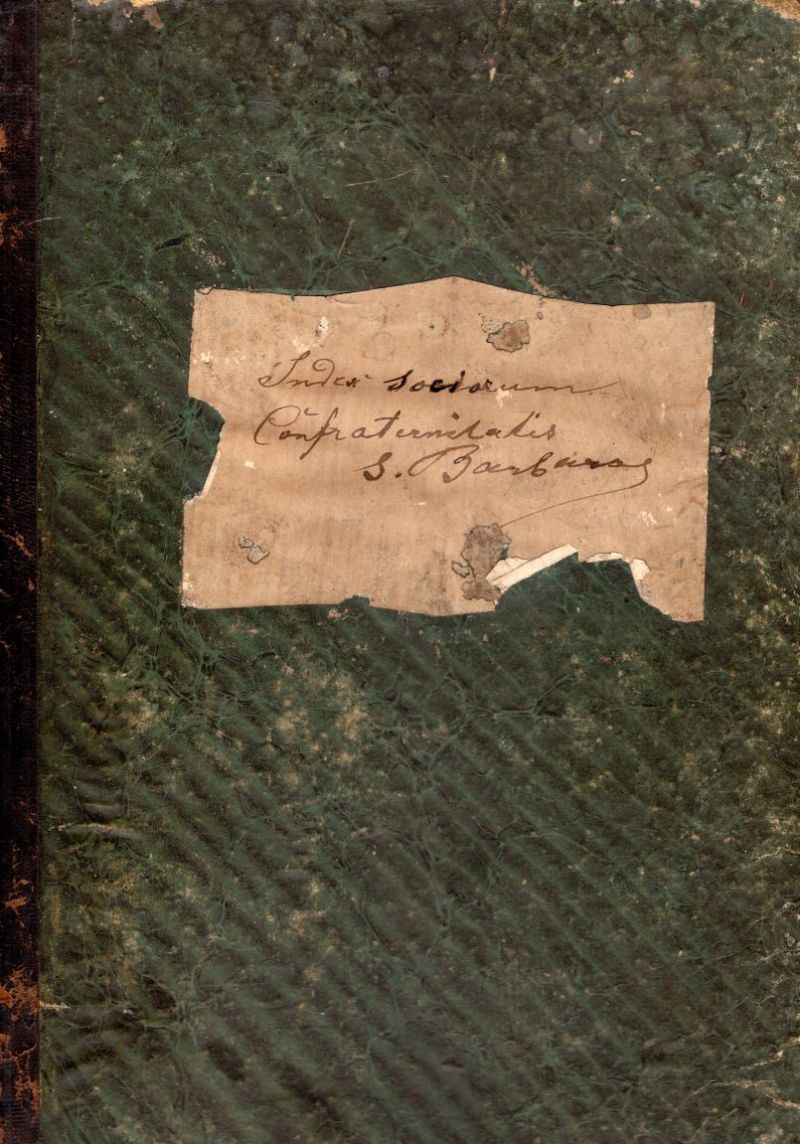 Index sociorum
Confraternitatis
S. Barbarae